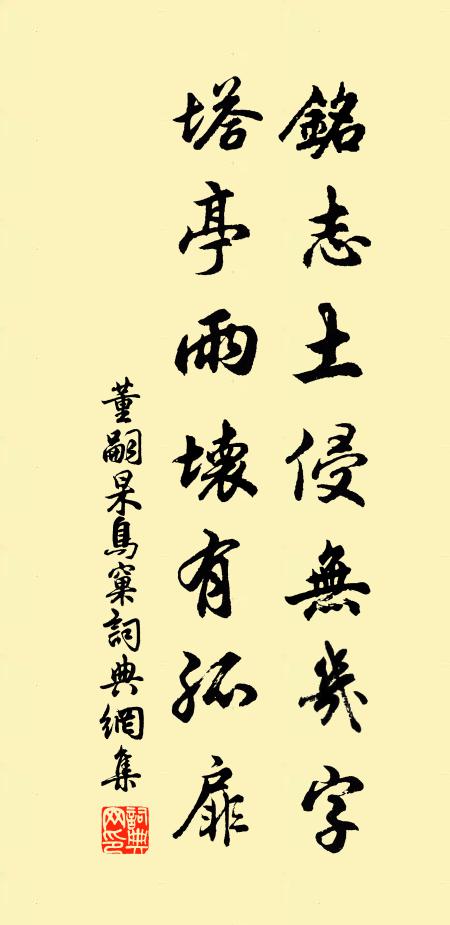 銘志土侵無幾字
塔亭雨壞有孤扉
董嗣杲鳥窠詞典網集
詞典网印